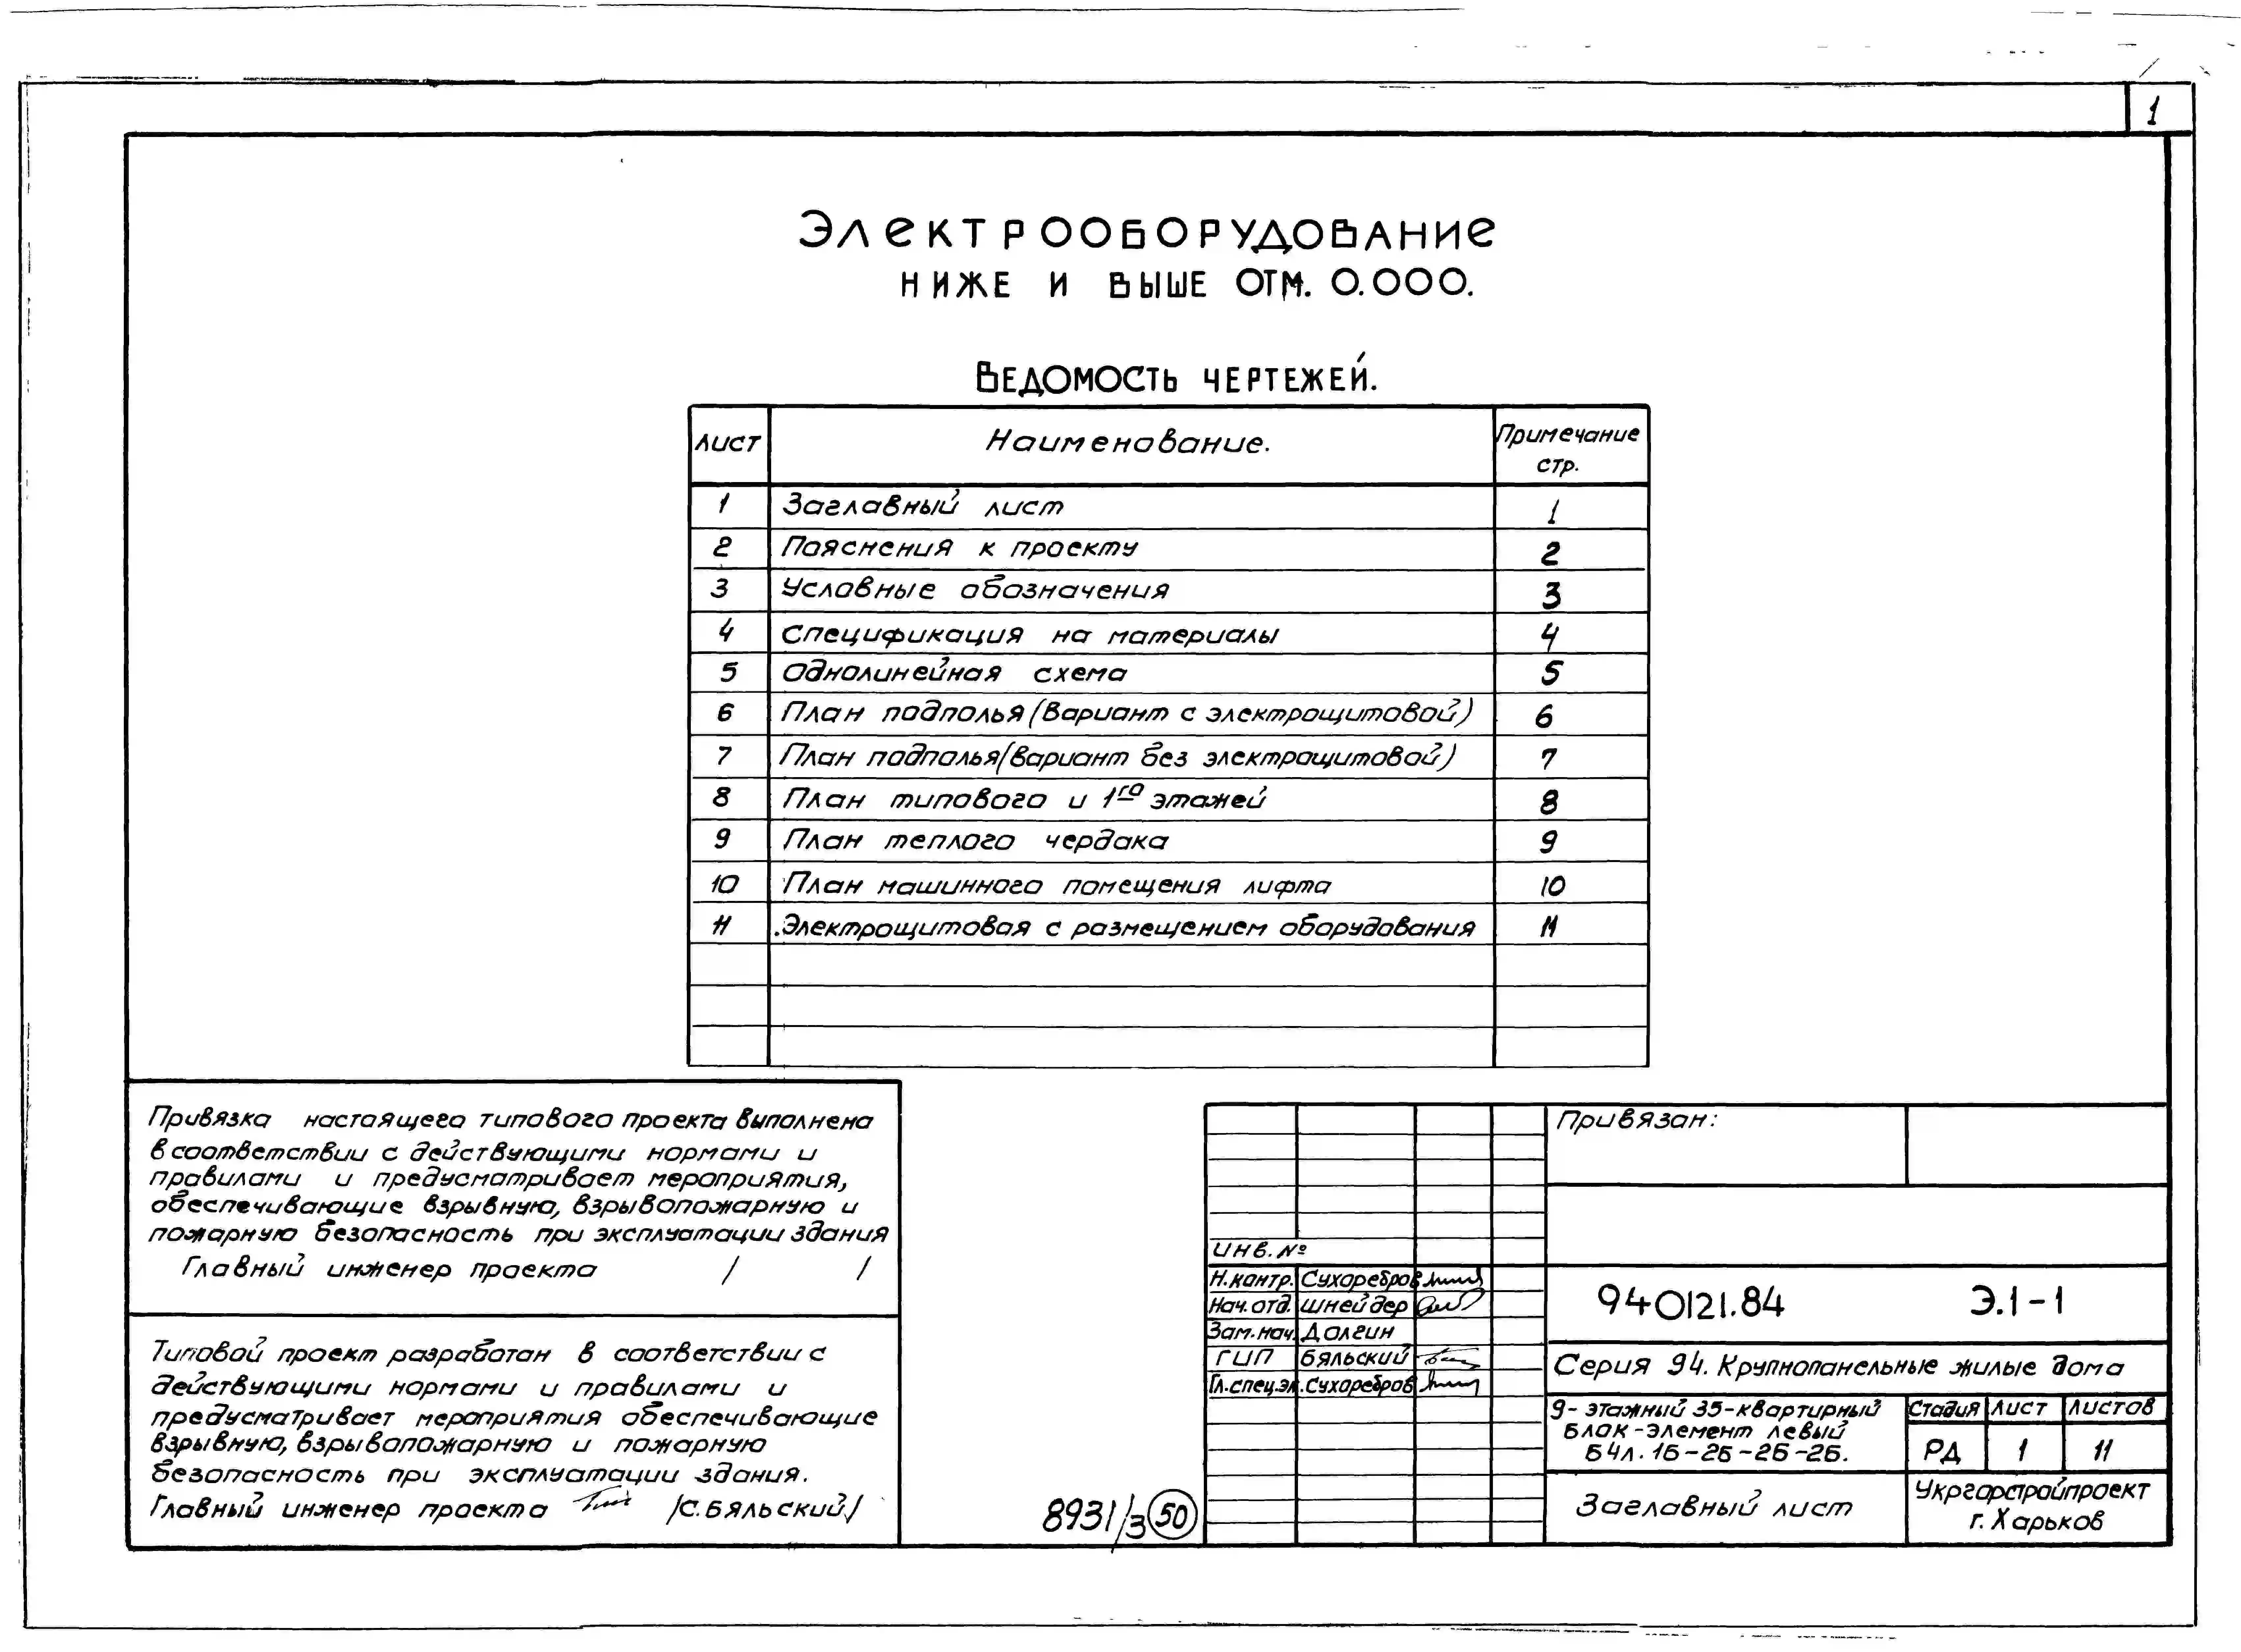 1
Электрооборудование
ниже и выше отм. 0.000.
Ведомость чертежей.
Лист Наименование. Примечание стр.
1 Заглавный лист 1
2 Пояснения к проекту 2
3 Условные обозначения 3
4 Спецификация на материалы 4
5 Однолинейная схема 5
6 План подполья (Вариант с электрощитовой) 6
7 План подполья (вариант без электрощитовой) 7
8 План типового и 1го этажей 8
9 План теплого чердака 9
10 План машинного помещения лифта 10
11 Электрощитовая с размещением оборудования 11
Привязка настоящего типового проекта выполнена
в соответствии с действующими нормами и
правилами и предусматривает мероприятия,
обеспечивающие взрывную, взрывопожарную и
пожарную безопасность при эксплуатации здания
Главный инженер проекта / /
Типовой проект разработан в соответствии с
действующими нормами и правилами и
предусматривает мероприятия обеспечивающие
взрывную, взрывопожарную и пожарную
безопасность при эксплуатации здания.
Главный инженер проекта /С. Бяльский/
8931/3 50
Привязан:
Инв. №
Н.контр. Сухоребров
Нач. отд. Шнейдер
Зам. нач. Долгин
ГИП Бяльский
Гл.спец.эл. Сухоребров
940121.84 Э.1-1
Серия 94. Крупнопанельные жилые дома
9-этажный 35-квартирный
блок-элемент левый
Б4л.1Б-2Б-2Б-2Б.
Стадия Лист Листов
РД 1 11
Заглавный лист
Укргорстройпроект
г. Харьков